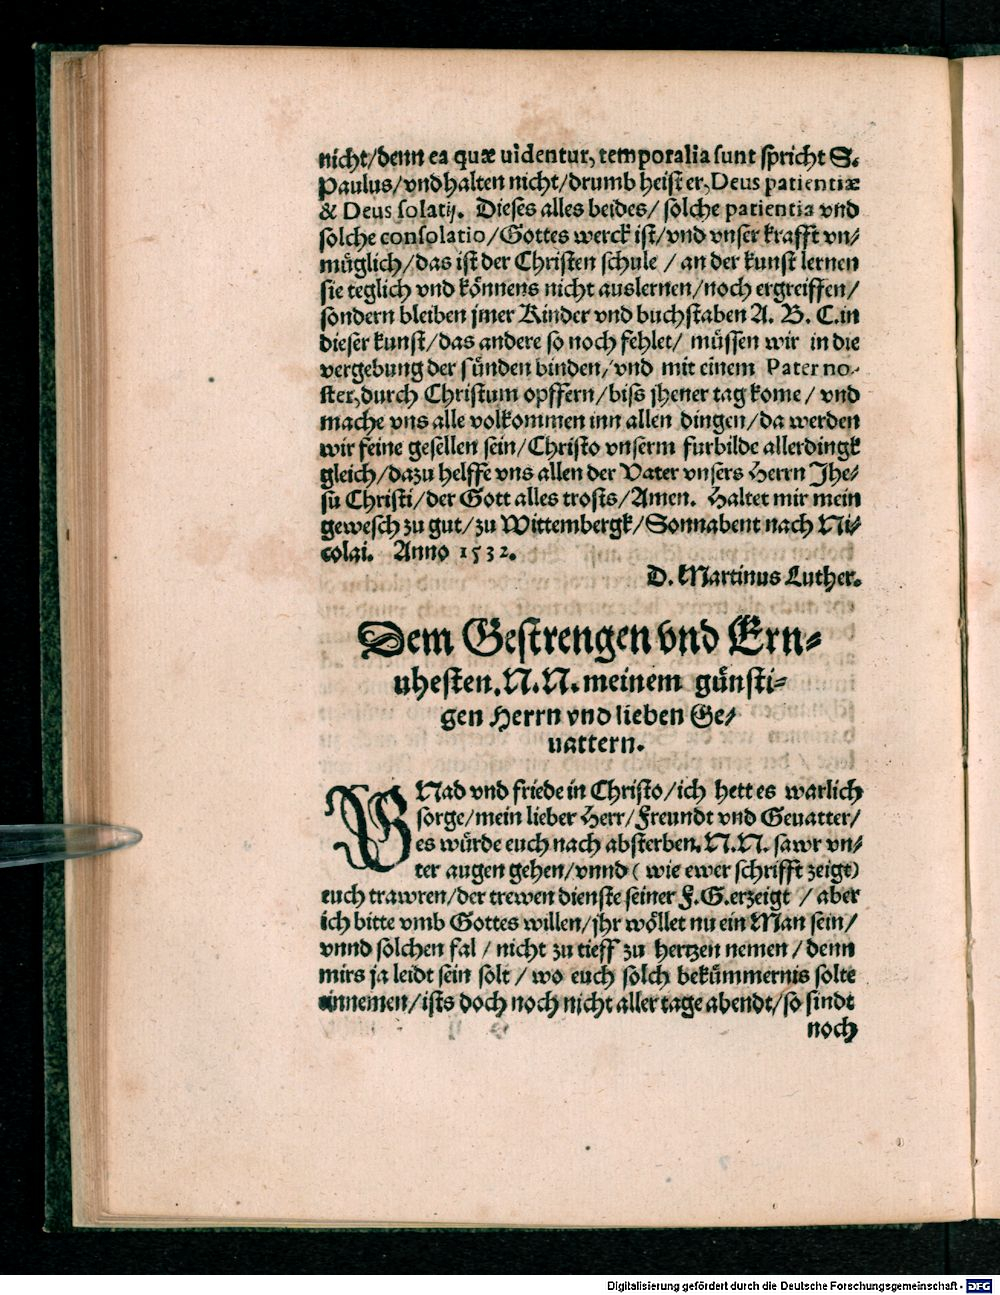 nicht/denn ea quæ uidentur, temporalia sunt spricht S.
Paulus/vnd halten nicht/drumb heist er, Deus patientiæ
& Deus solatij. Dieses alles beides/ solche patientia vnd
solche consolatio/Gottes werck ist/vnd vnser krafft vn-
müglich/das ist der Christen schule / an der kunst lernen
sie teglich vnd könnens nicht auslernen/noch ergreiffen/
sondern bleiben jmer Kinder vnd buchstaben A. B. C. in
dieser kunst/das andere so noch fehlet/ müssen wir in die
vergebung der sünden binden/vnd mit einem Pater no-
ster, durch Christum opffern/biss jhener tag kome/ vnd
mache vns alle volkommen inn allen dingen/da werden
wir feine gesellen sein/Christo vnserm furbilde allerdingk
gleich/dazu helffe vns allen der Vater vnsers Herrn Jhe-
su Christi/der Gott alles trosts/Amen. Haltet mir mein
gewesch zu gut/zu Wittembergk/Sonnabent nach Ni-
colai. Anno 1532.
D. Martinus Luther.
Dem Gestrengen vnd Ern-
uhesten. N. N. meinem günsti-
gen Herrn vnd lieben Ge-
uattern.
GNad vnd friede in Christo/ich hett es warlich
sorge/mein lieber Herr/Freundt vnd Geuatter/
es würde euch nach absterben. N. N. sawr vn-
ter augen gehen/vnnd ( wie ewer schrifft zeigt)
euch trawren/der trewen dienste seiner F. G. erzeigt / aber
ich bitte vmb Gottes willen/jhr wöllet nu ein Man sein/
vnnd solchen fal / nicht zu tieff zu hertzen nemen / denn
mirs ja leidt sein solt / wo euch solch bekümmernis solte
einnemen/ists doch noch nicht aller tage abendt/so sindt
noch
Digitalisierung gefördert durch die Deutsche Forschungsgemeinschaft - DFG